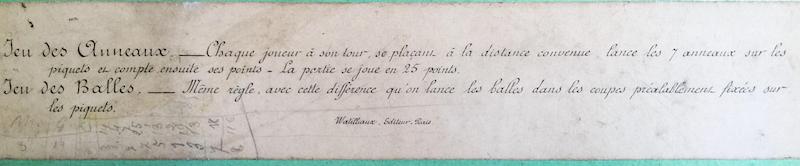 Jeu des Anneaux. — Chaque joueur à son tour, se plaçant à la distance convenue, lance les 7 anneaux sur les
piquets et compte ensuite ses points - La partie se joue en 25 points.
Jeu des Balles. — Même règle, avec cette différence qu'on lance les balles dans les coupes préalablement fixées sur
les piquets.
Watilliaux, Editeur, Paris